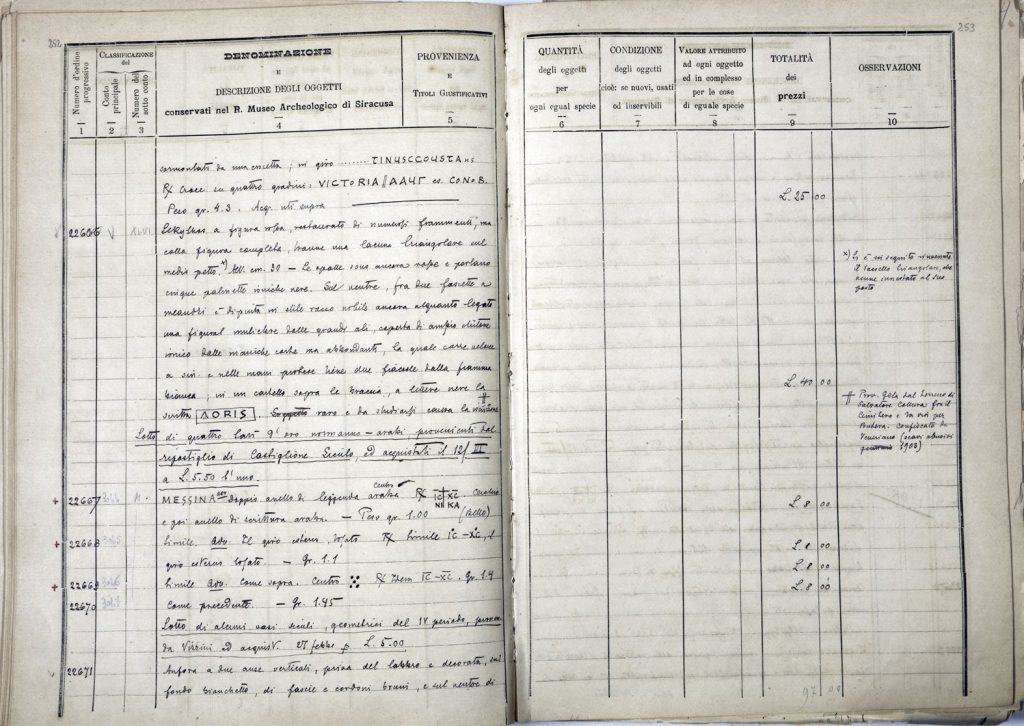 252
Numero d'ordine progressivo
1
CLASSIFICAZIONE
del
Conto principale
2
Numero del sotto conto
3
DENOMINAZIONE
E
DESCRIZIONE DEGLI OGGETTI
conservati nel R. Museo Archeologico di Siracusa
4
PROVENIENZA
E
TITOLI GIUSTIFICATIVI
5
sormontata da una crocetta; in giro ........ TINUSCCOUSTA
R/ Croce su quattro gradini: VICTORIA // AAUΓ es. CONOB.
Peso gr. 4.3. Acq. uti supra
Lekythos a figura rossa, restaurato di numerosi frammenti, ma
colla figura completa, tranne una lacuna triangolare sul
medio petto. x) Alt. cm. 30 – Le spalle sono ancora rosse e portano
cinque palmette ioniche nere. Sul ventre, fra due fascette a
meandri è dipinta in stile rosso nobile ancora alquanto legato
una figura muliebre dalle grandi ali, coperta di ampio chitone
ionico dalle maniche corte ma abbondanti, la quale corre veloce
a sin. e nelle mani protese tiene due fiaccole dalla fiamma
bianca; in un cartello sopra le braccia, a lettere nere la
scritta ΔORIS. Soggetto raro e da studiarsi causa la
Lotto di quattro tarì d'oro normanno-arabi provenienti dal
ripostiglio di Castiglione Siculo, ed acquistati il 12/III
a L. 5.50 l'uno.
+ 22667
MESSINA doppio anello di leggenda araba Centro R/ IC XC NI KA
e poi anello di scrittura araba. – Peso gr. 1.00
+ 22668
Simile. Il giro esterno tosato R/ Simile IC – XC, il
giro esterno tosato. – Gr. 1.1
+ 22669
Simile come sopra. Centro R/ Idem IC – XC. Gr. 1.4
22670
Come precedente. – Gr. 1.45
Lotto di alcuni vasi siculi, geometrici del IV periodo,
da Vizzini ed acquist. 27 febbr. p. L. 5.00
22671
Anfora a due anse verticali, priva del labbro e decorata, sul
fondo bianchetto, di fascie e cordoni bruni, e sul ventre di
253
QUANTITÀ
degli oggetti
per
ogni egual specie
6
CONDIZIONE
degli oggetti
cioè: se nuovi, usati
od inservibili
7
VALORE ATTRIBUITO
ad ogni oggetto
ed in complesso
per le cose
di eguale specie
8
TOTALITÀ
dei
prezzi
9
OSSERVAZIONI
10
L. 25 00
x) Si è in seguito rinvenuto
il tassello triangolare, che
venne innestato al suo
posto
L. 40 00
Prov. Gela dal terreno di
Salvatore fra il
Cimitero e la via per
Butera. Confiscato da
Veneziano (scavi abusivi
1903)
L. 8 00
L. 8 00
L. 8 00
L. 8 00
97 00